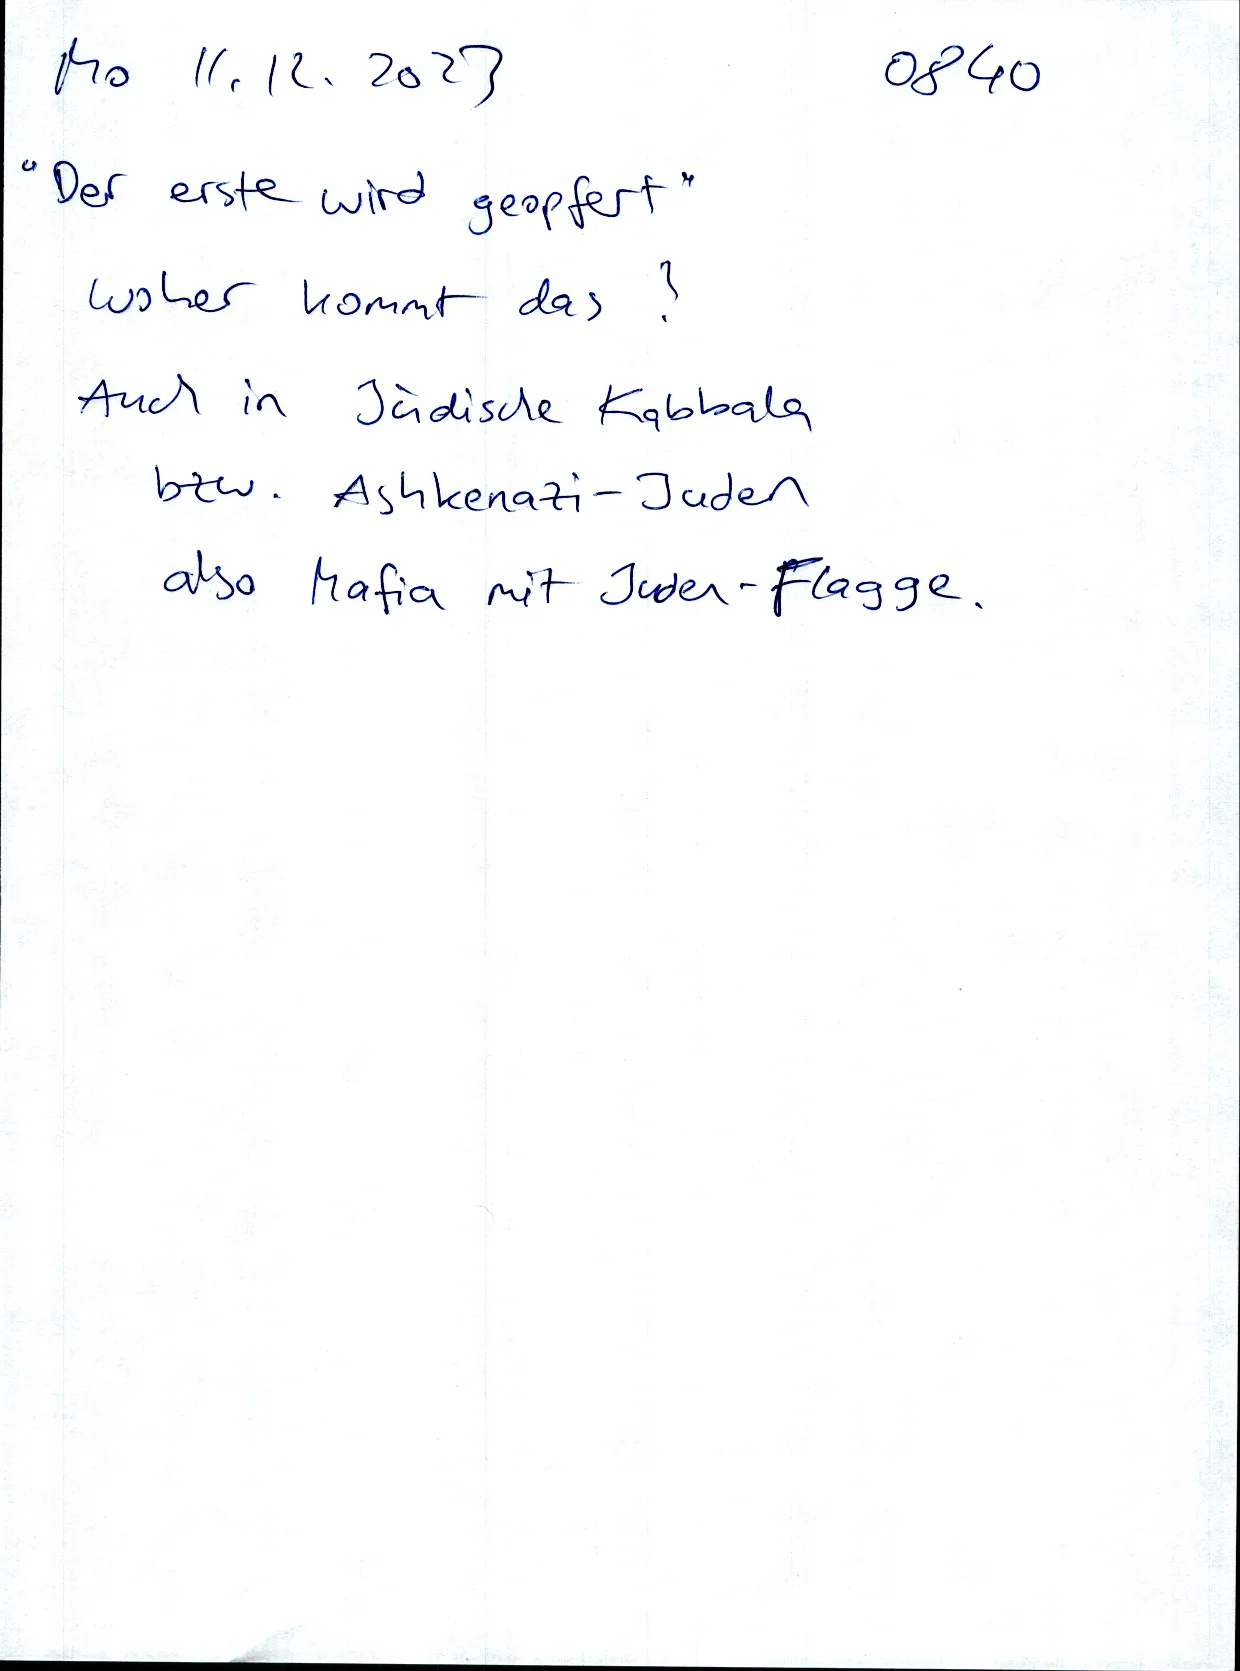 Mo 11.12.2023 0840
"Der erste wird geopfert"
woher kommt das?
Auch in Jüdische Kabbala
bzw. Ashkenazi-Juden
also Mafia mit Juden-Flagge.